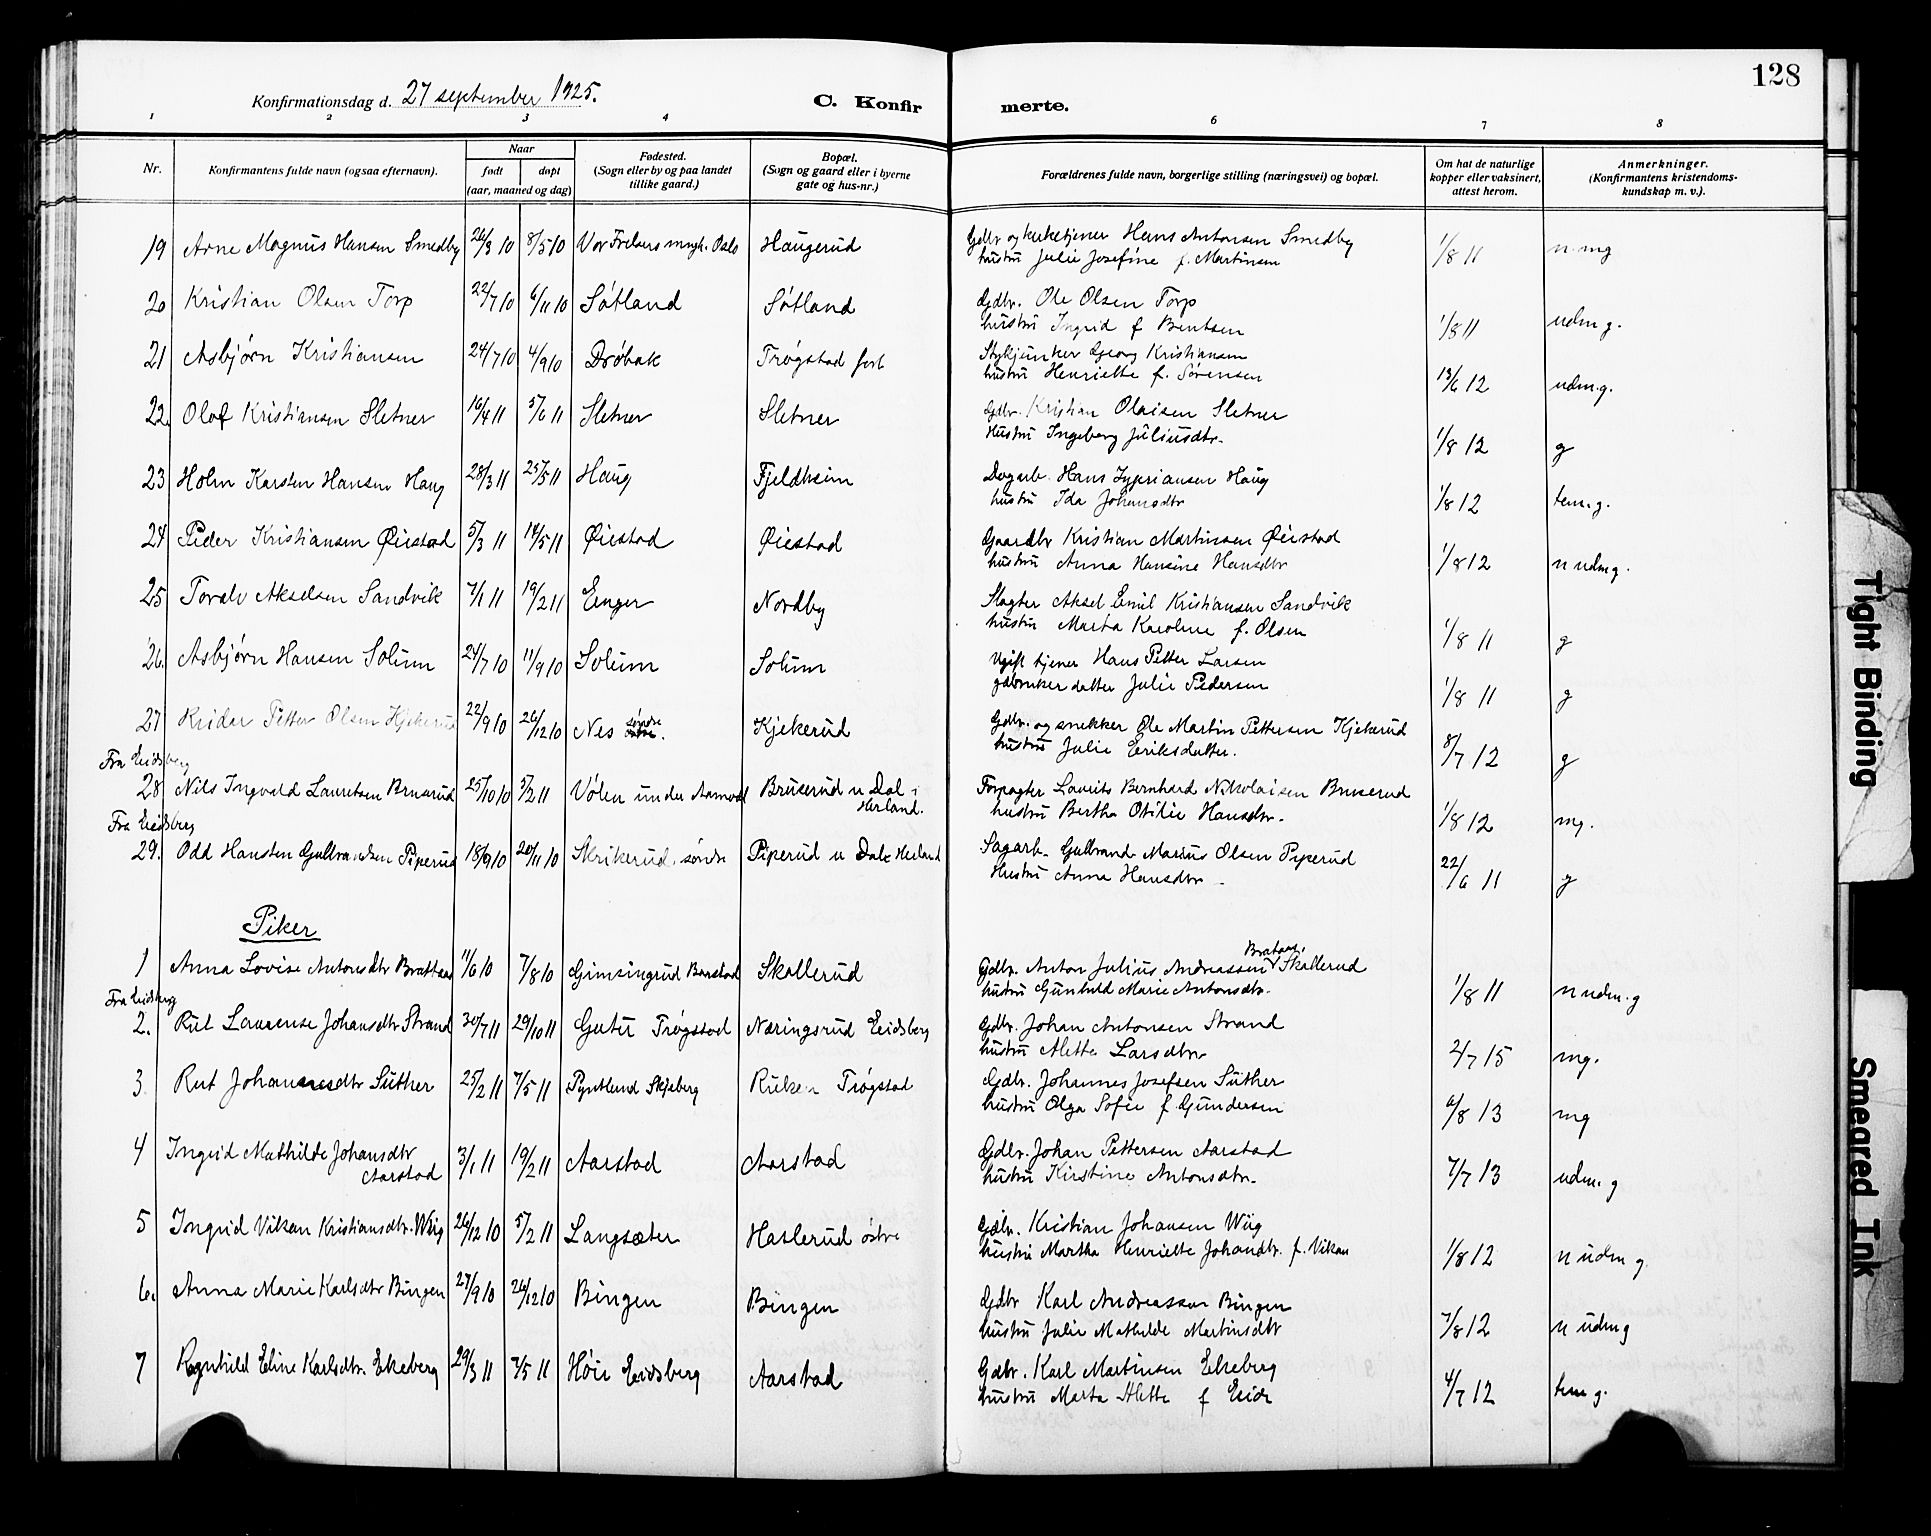 128
Konfirmationsdag d. 27 september 1925.
C. Konfir merte.
1 2 3 4 6 7 8
Nr.
Konfirmantens fulde navn (ogsaa efternavn).
Naar
født døpt
(aar, maaned og dag)
Fødested.
(Sogn eller by og paa landet
tillike gaard.)
Bopæl.
(Sogn og gaard eller i byerne
gate og hus-nr.)
Forældrenes fulde navn, borgerlige stilling (næringsvei) og bopæl.
Om hat de naturlige
kopper eller vaksinert,
attest herom.
Anmerkninger.
(Konfirmantens kristendoms-
kundskap m. v.).
19 Arne Magnus Hansen Smedby 26/3 10 8/5 10 Vor Frelsers mngh. Oslo Haugerud Gdbr og kirketjener Hans Antonsen Smedby
hustru Julie Josefine f. Martinsen 1/8 11 n. mg
20 Kristian Olsen Torp 22/7 10 6/11 10 Søtland Søtland Gdbr. Ole Olsen Torp
hustru Ingrid f Bentsen 1/8 11 udm g.
21 Asbjørn Kristiansen 24/7 10 4/9 10 Drøbak Trøgstad fort Stykjunker Georg Kristiansen
hustru Henriette f. Sørensen 13/6 12 udm.g.
22. Olaf Kristiansen Sletner 16/4 11 5/6 11 Sletner Sletner Gdbr. Kristian Olaisen Sletner
Hustru Ingeborg Juliusdtr. 1/8 12 g
23 Holm Karsten Hansen Haug 28/3 11 25/5 11 Haug Fjeldheim Dagarb. Hans Syprianssen Haug
hustru Ida Johansdtr 1/8 12 tem. g.
24 Peder Kristiansen Øiestad 5/3 11 14/5 11 Øiestad Øiestad Gaardbr Kristian Martinsen Øiestad
hustru Anna Hansine Hansdtr 1/8 12 n udm g.
25 Toralv Akselsen Sandvik 7/1 11 19/2 11 Enger Nordby Slagter Aksel Emil Kristiansen Sandvik
hustru Marta Karoline f. Olsen 1/8 11 g
26. Asbjørn Hansen Solum 24/7 10 11/9 10 Solum Solum Ugift tjener Hans Petter Larsen
gdbruker datter Julie Pedersen 1/8 11 g
27 Reidar Petter Olsen Kjekerud 22/9 10 26/12 10 Nes søndre. Kjekerud Gdbr. og snekker Ole Martin Pettersen Kjekerud
hustru Julie Eriksdatter. 8/7 12 g
Fra Eidsberg
28 Nils Ingvald Lauritsen Bruserud 25/10 10 5/2 11 Vølen under Aamodt Bruserud u Dal i
Herland. Forpagter Laurits Bernhard Nikolaisen Bruserud
hustru Bertha Otilie Hansdtr. 1/8 12 mg.
Fra Eidsberg
29. Odd Hansten Gulbrandsen Piperud 18/9 10 20/11 10 Skrikerud, søndr Piperud u Dale Herland Sagarb. Gulbrand Marius Olsen Pyperud
Hustru Anna Hansdtr. 22/6 11 g
Piker
1 Anna Lovise Antonsdtr Brattaas 11/6 10 7/8 10 Gimsingrud Baastad Skallerud Gdbr. Anton Julius Andreassen Brataas, Skallerud
hustru Gunhild Marie Antonsdtr. 1/8 11 n udm. g
Fra Eidsberg
2. Rut Laurense Johansdtr Strand 30/7 11 29/10 11 Gutu Trøgstad Næringsrud Eidsberg Gdbr. Johan Antonsen Strand
hustru Alette Larsdtr 2/7 15 mg.
3 Rut Johannesdtr Suther 25/2 11 7/5 11 Pyntlund Skjeberg Ruken Trøgstad Gdbr. Johannes Josefsen Suther
hustru Olga Sofie f. Gundersen 6/8 13 mg
4 Ingrid Mathilde Johansdtr
Aarstad 3/1 11 19/2 11 Aarstad Aarstad Gdbr. Johan Pettersen Aarstad
hustru Kirstine Antonsdtr. 7/7 13 udm. g
5 Ingrid Vikan Kristiansdtr. Wiig 26/12 10 5/2 11 Langsæter Haslerud østre Gdbr. Kristian Johansen Wiig
hustru Martha Henriette Johansdtr. f. Vikan 1/8 12 n udm g.
6. Anna Marie Karlsdtr Bingen 27/9 10 26/12 10 Bingen Bingen Gdbr Karl Andreassen Bingen
hustru Julie Mathilde Martinsdtr 7/8 12 n udm g
7 Ragnhild Eline Karlsdtr. Ekeberg 29/3 11 7/5 11 Høie Eidsberg Aarstad Gdbr. Karl Martinsen Ekeberg
hustru Marta Alette f Eide 4/7 12 tem g.
Tight Binding
Smeared Ink